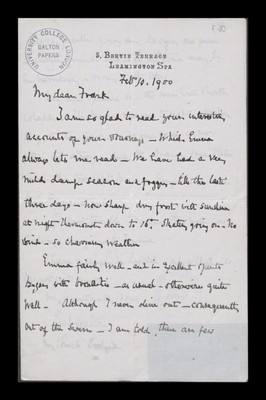 UNIVERSITY COLLEGE LONDON
GALTON PAPERS
5, BERTIE TERRACE
LEAMINGTON SPA
Feb 10. 1900
My dear Frank
I am so glad to read your interesting
accounts of your journeys - Which Emma
always lets me read - We have had a very
mild damp season and foggy - till this last
three days - now sharp dry frost with sunshine
at night Thermometer down to 16°. Skating going on - No
wind - so charming weather
Emma fairly well - and in excellent spirits
Bessy with bronchitis - as usual - otherwise quite
well - Although I never dine out - consequently
out of the swim - I am told, there are few